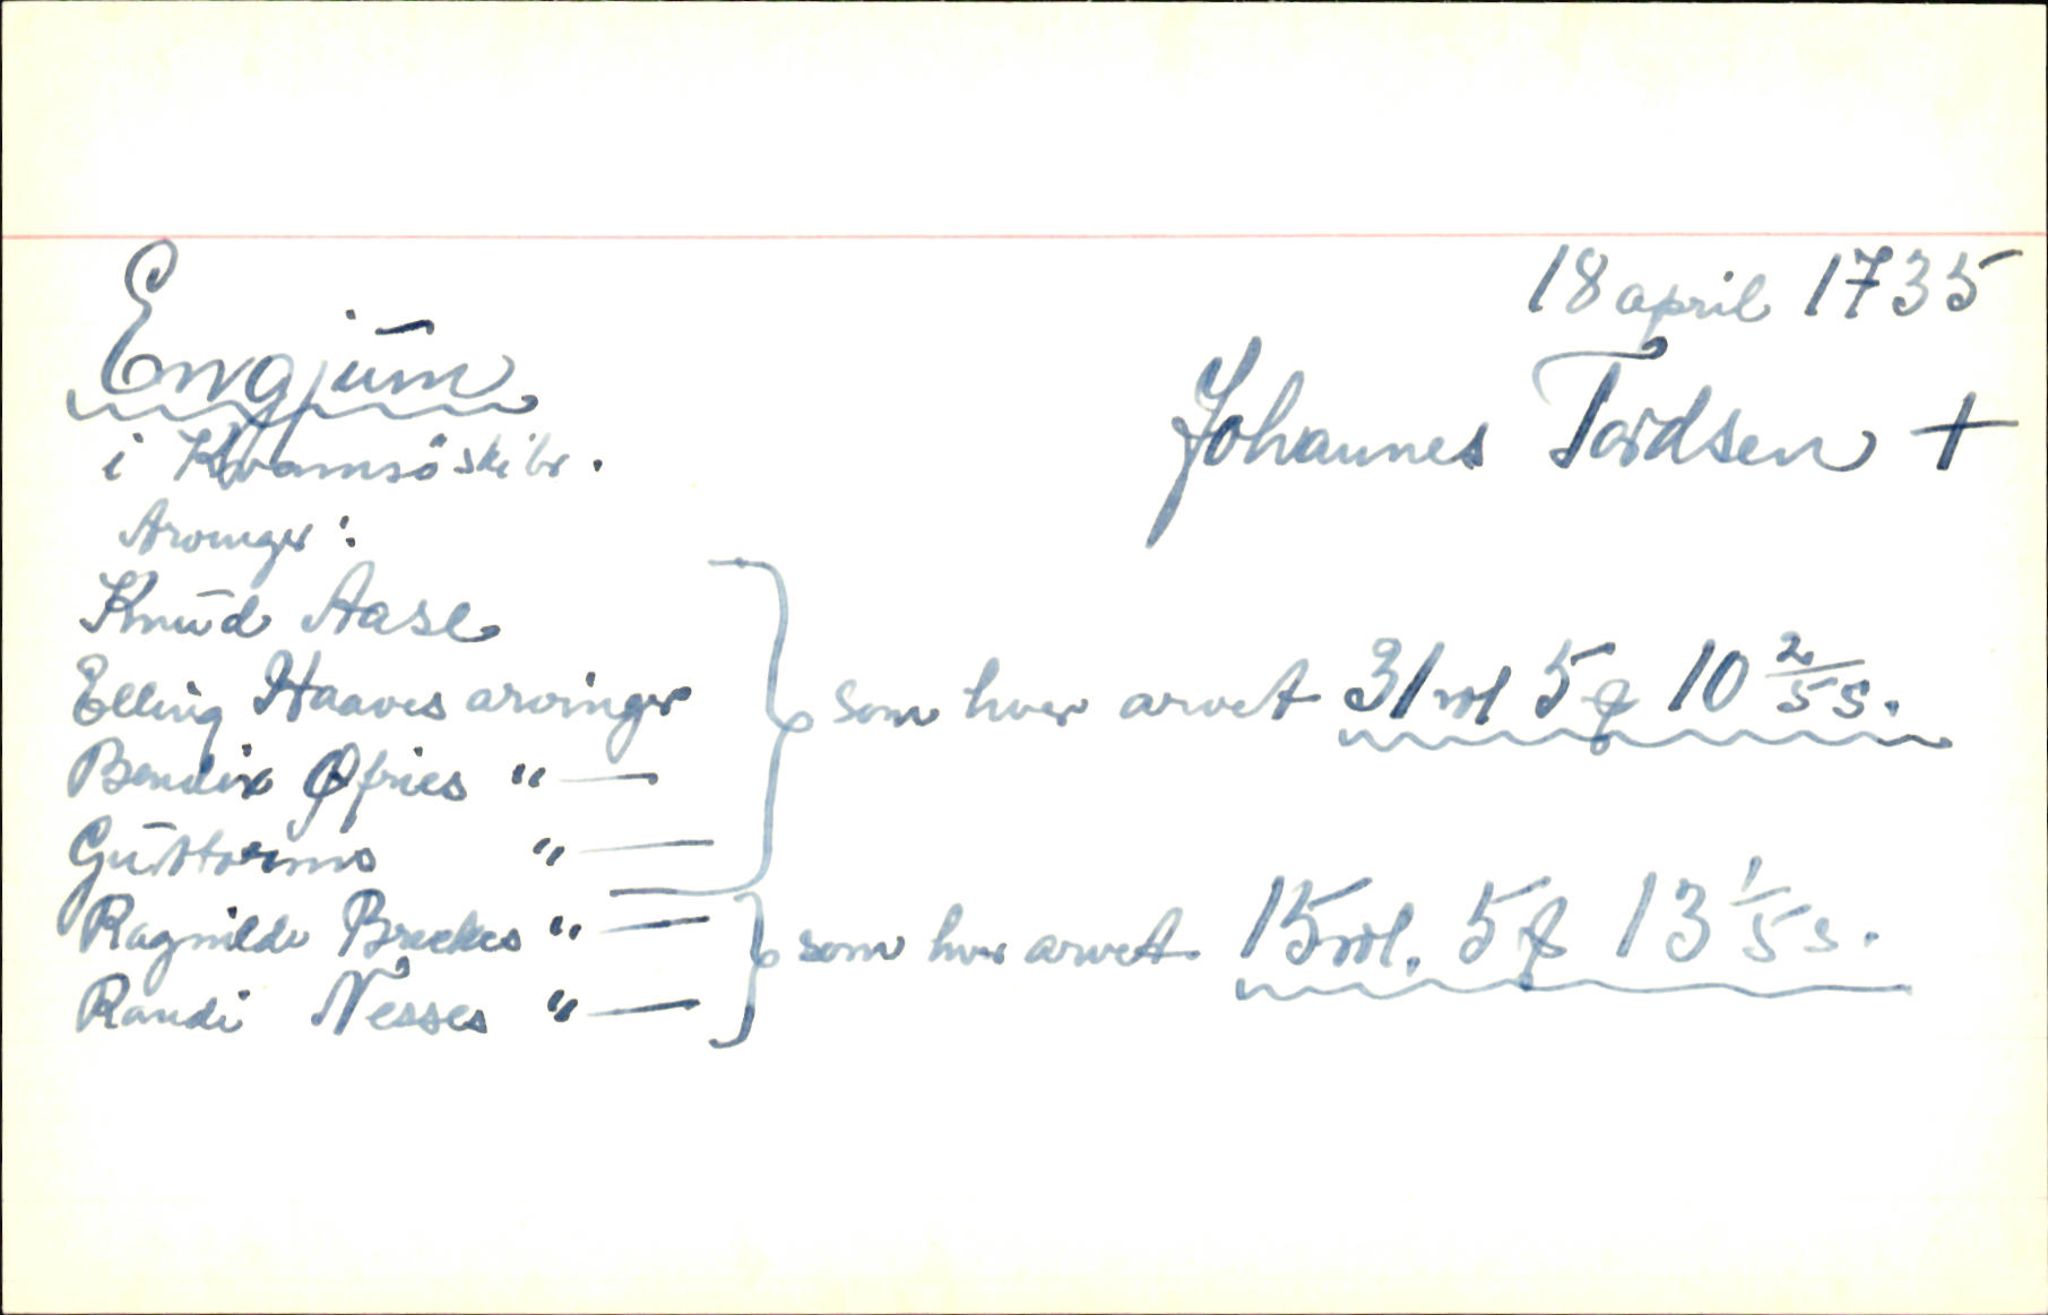 18 april 1735
Engjum
Johannes Tordsen +
i Kvamsö skibr.
Arvinger:
Knud Aase
Elling Haaves arvinger
som hver arvet 31 rd 5 ƶ 10 2/5 s.
Bendix Øfries "—
Guttorms "—
Ragnilde Brekkes "—
som hver arvet 15 rd. 5 ƶ 13 1/5 s.
Randi Nesses "—